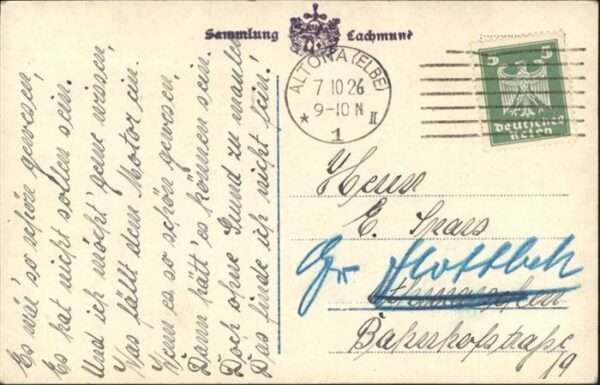 Sammlung Lachmund
Es wär' so schön gewesen,
Es hat nicht sollen sein.
Und ich möcht' gerne wissen,
Was fällt dem Motor ein.
Wenn es so schön gewesen,
Dann hätt' es können sein.
Doch ohne Grund zu maulen
Das finde ich nicht fein!
ALTONA (ELBE)
7 10 26
9-10 N
* 1 II
5 5
Deutsches Reich
Herrn
E. Spars
Gr Flottbek
Bahnhofstraße
19